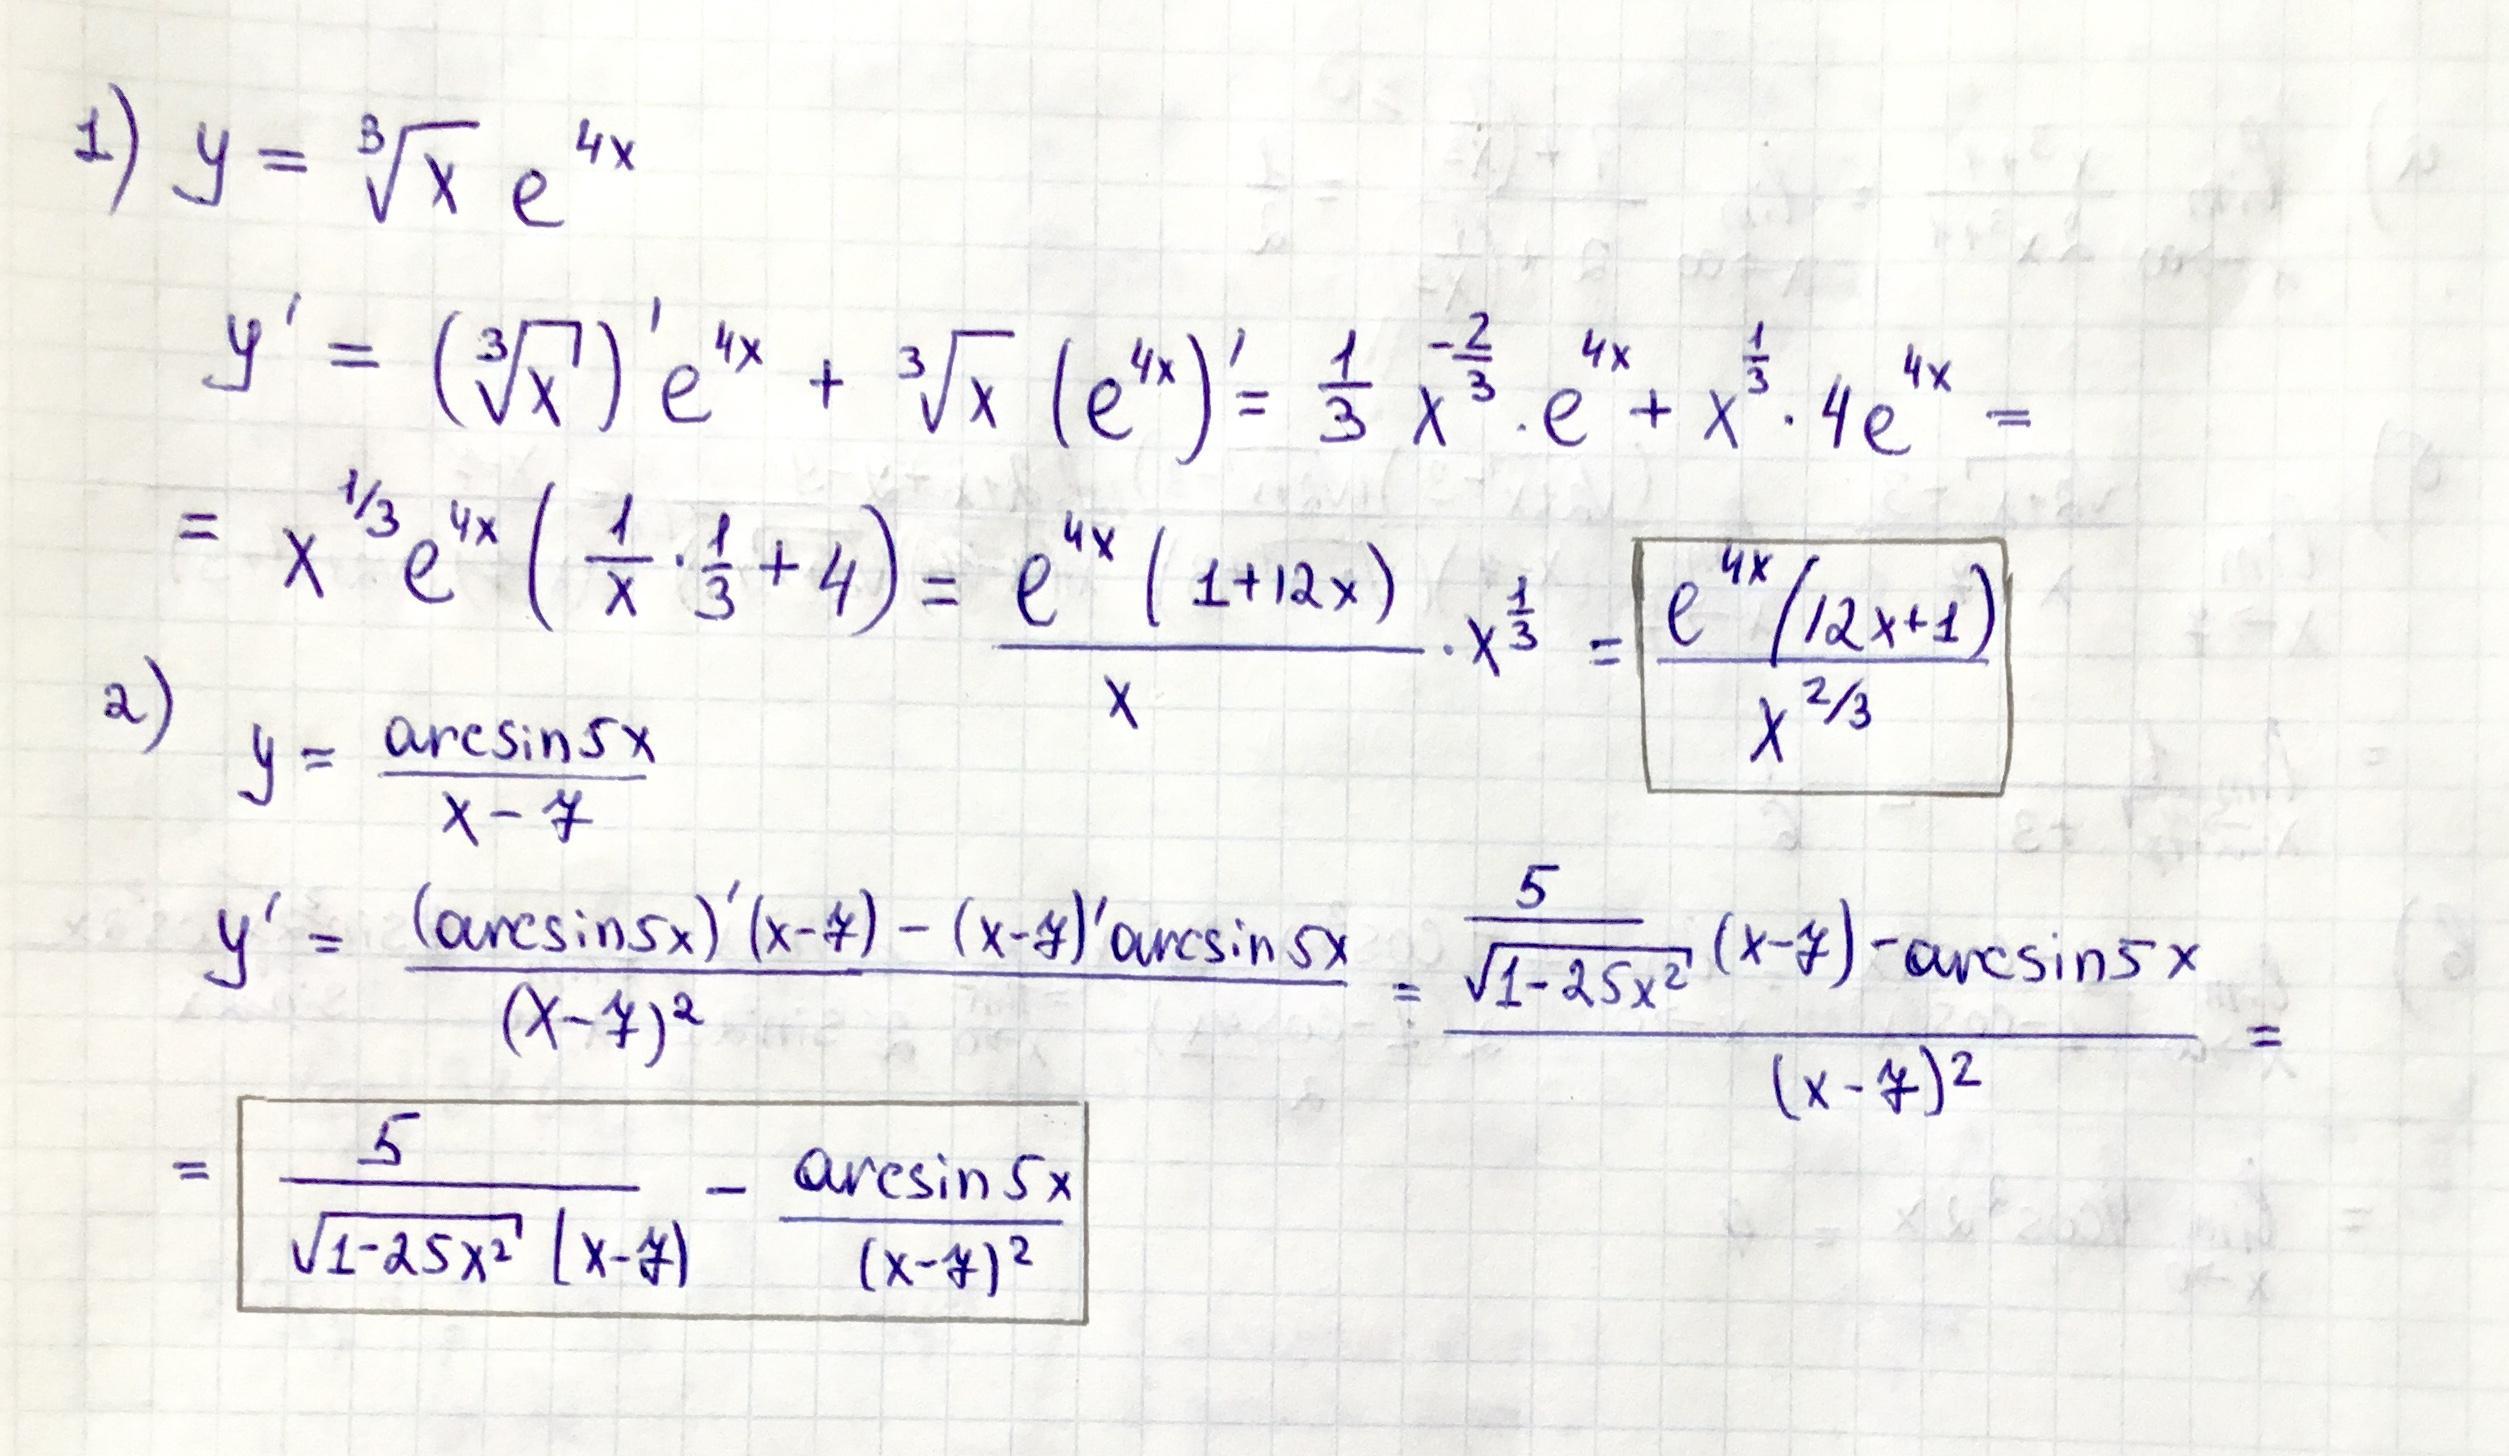 1) y = ∛x e^{4x}
y' = (∛x)' e^{4x} + ∛x (e^{4x})' = 1/3 x^{-2/3} · e^{4x} + x^{1/3} · 4e^{4x} =
= x^{1/3} e^{4x} (1/x · 1/3 + 4) = e^{4x}(1+12x)/x · x^{1/3} = e^{4x}(12x+1)/x^{2/3}
2) y = arcsin5x/(x-7)
y' = ((arcsin5x)'(x-7) - (x-7)'arcsin5x)/(x-7)² = (5/√(1-25x²) (x-7) - arcsin5x)/(x-7)² =
= 5/(√(1-25x²) (x-7)) - arcsin5x/(x-7)²